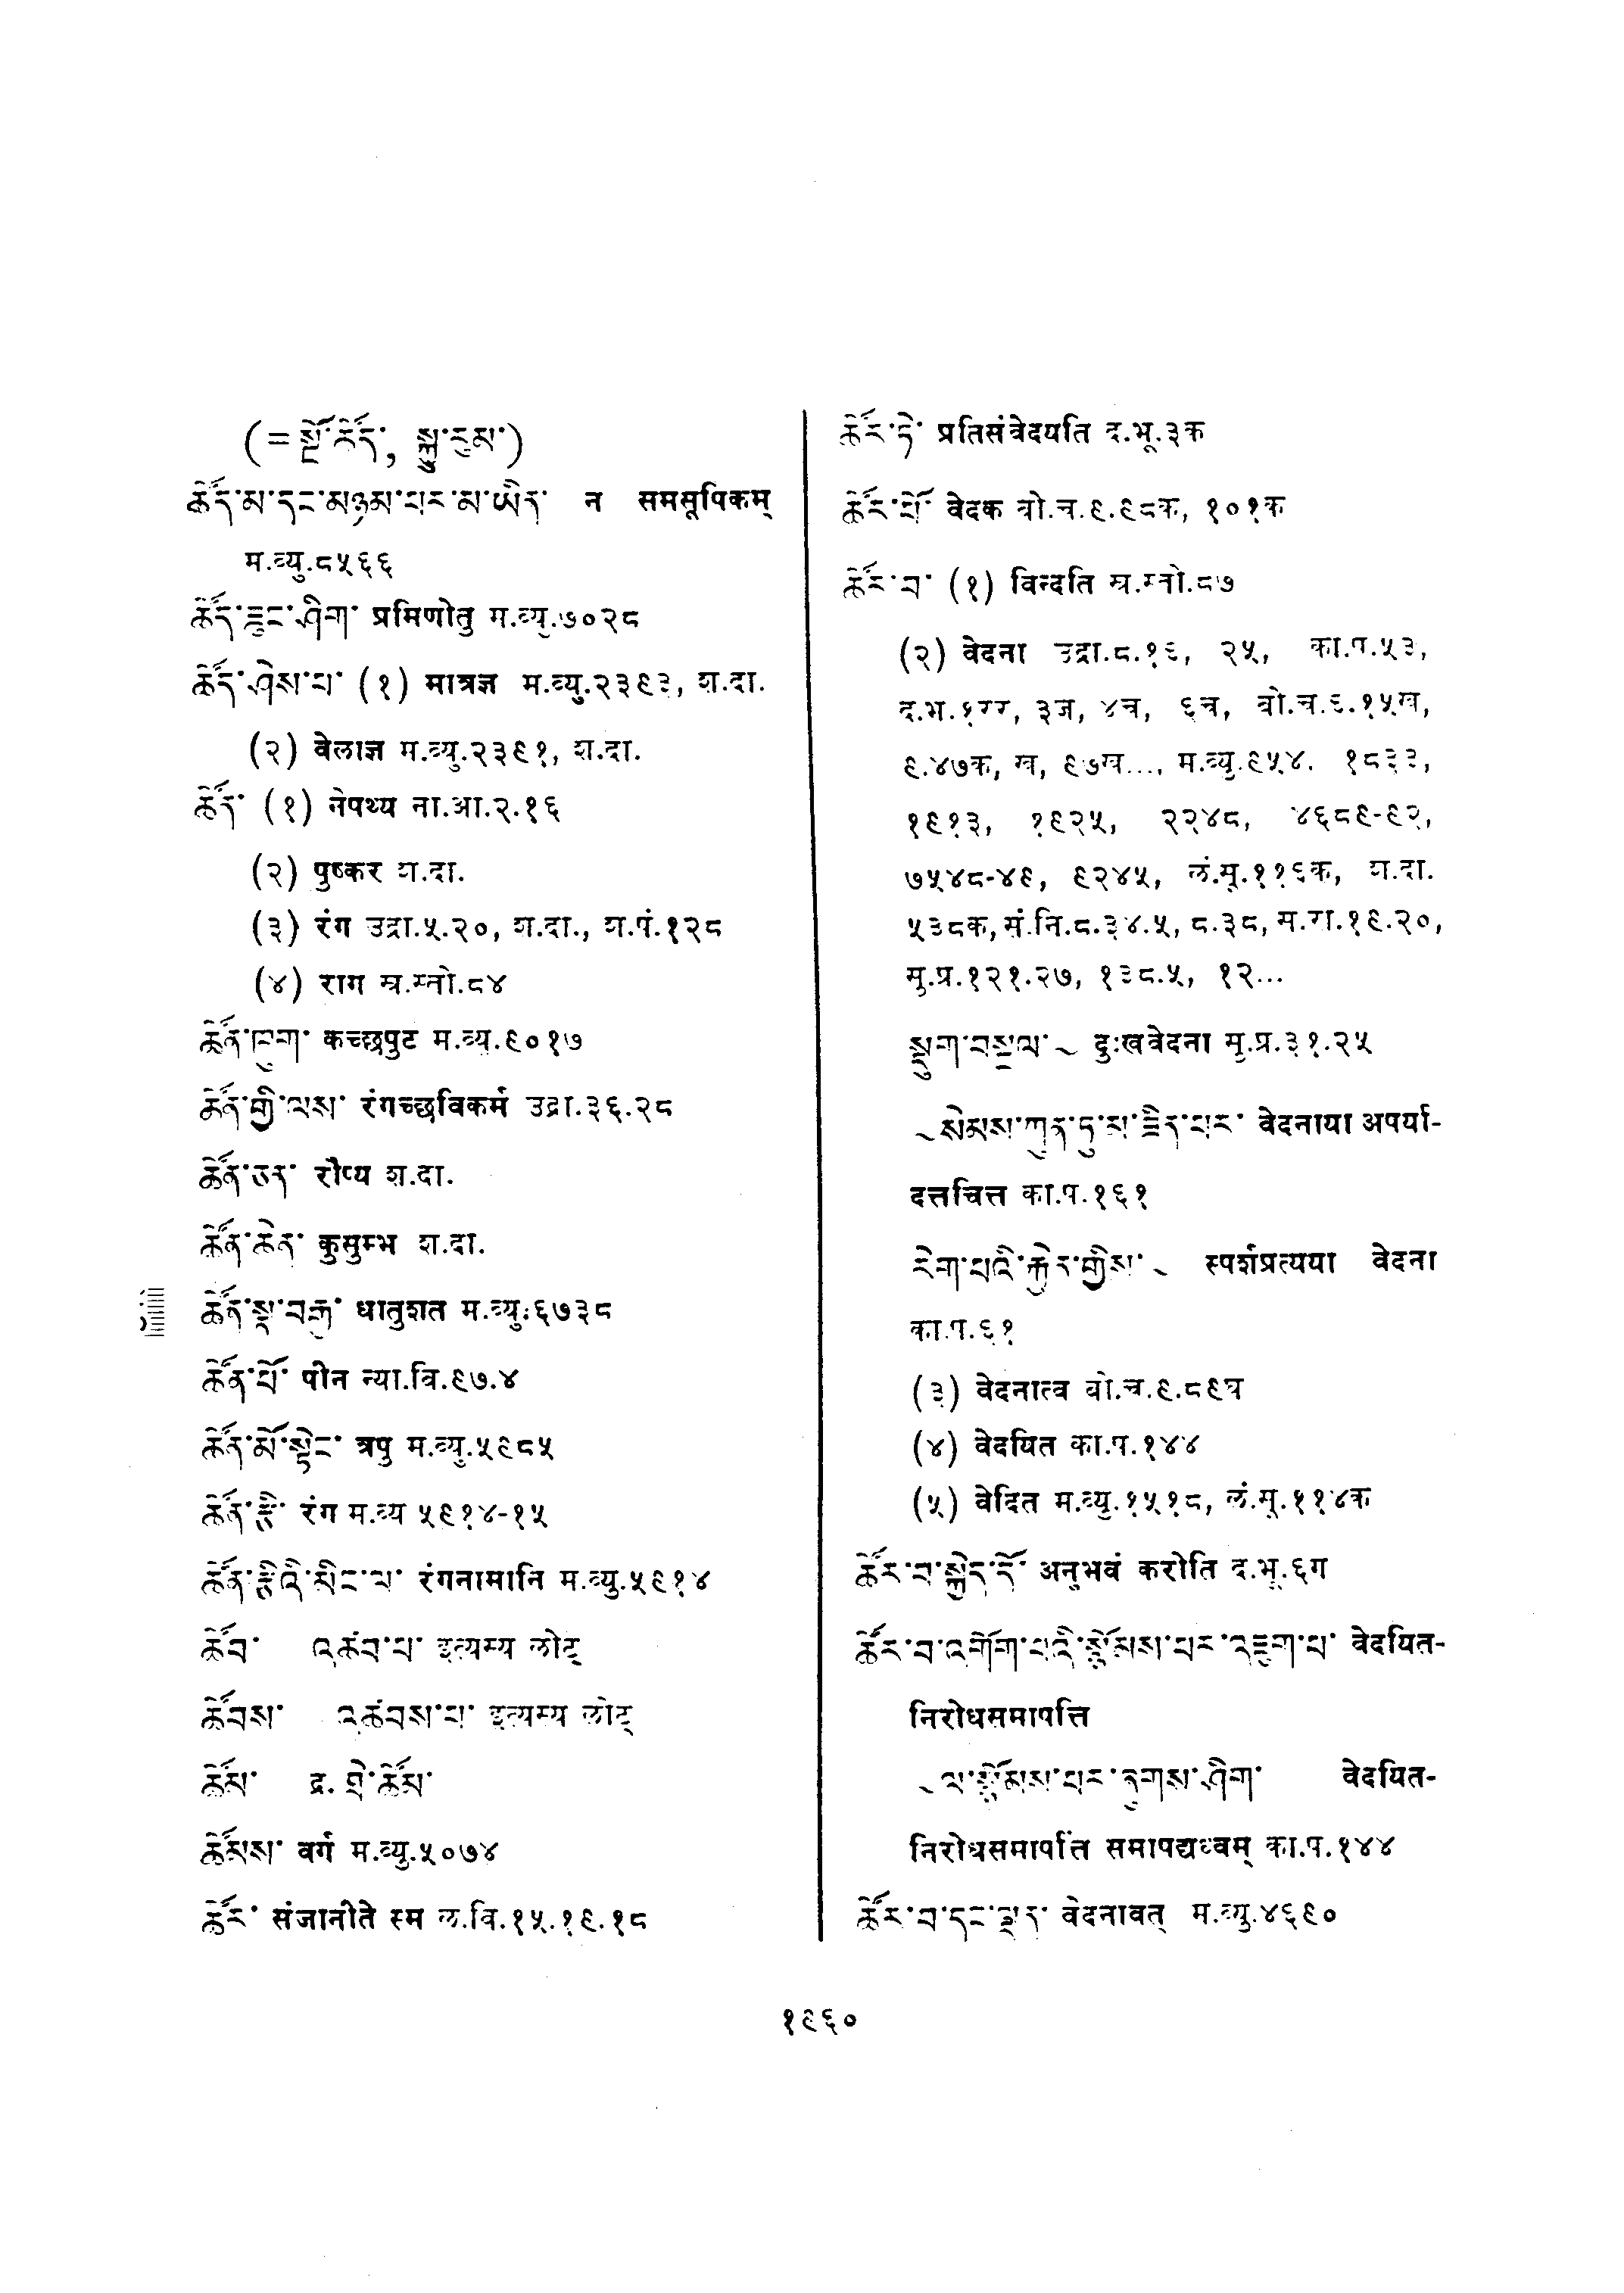 (=སྔོ་ཚོད་, སྐྱུ་རུམ་)
ཚོད་མ་དང་མཉམ་པར་མ་ཡིན་ न समसूपिकम्
म.व्यु.८५६६
ཚོད་ཟུང་ཤིག་ प्रमिणोतु म.व्यु.७०२८
ཚོད་ཤེས་པ་ (१) मात्रज्ञ म.व्यु.२३९३, श.दा.
(२) वेलाज्ञ म.व्यु.२३९१, श.दा.
ཚོན་ (१) नेपथ्य ना.आ.२.१६
(२) पुष्कर श.दा.
(३) रंग उद्रा.५.२०, श.दा., श.पं.१२८
(४) राग स्र.स्तो.८४
ཚོན་ཁུག་ कच्छपुट म.व्यु.९०१७
ཚོན་གྱི་ལས་ रंगच्छविकर्म उद्रा.३६.२८
ཚོན་ཅན་ रौप्य श.दा.
ཚོན་ཆེན་ कुसुम्भ श.दा.
ཚོན་སྣ་བརྒྱ་ धातुशत म.व्यु.६७३८
ཚོན་པོ་ पीन न्या.वि.९७.४
ཚོན་མོ་སྟེང་ त्रपु म.व्यु.५९८५
ཚོན་རྩི་ रंग म.व्य ५९१४-१५
ཚོན་རྩིའི་མིང་ལ་ रंगनामानि म.व्यु.५९१४
ཚོབ་ འཚབ་པ་ इत्यस्य लोट्
ཚོབས་ འཚབས་པ་ इत्यस्य लोट्
ཚོམ་ द्र. ཐེ་ཚོམ་
ཚོམས་ वर्ग म.व्यु.५०७४
ཚོར་ संजानीते स्म ल.वि.१५.१९.१८
ཚོར་ཏེ་ प्रतिसंवेदयति द.भू.३क
ཚོར་པོ་ वेदक बो.च.९.९८क, १०१क
ཚོར་བ་ (१) विन्दति स्र.स्तो.८७
(२) वेदना उद्रा.८.१६, २५, का.प.५३,
द.भू.१ग्ग, ३ज, ४च, ६च, बो.च.६.१५ख,
९.४७क, ख, ९७ख..., म.व्यु.९५४. १८३३,
१९१३, १९२५, २२४८, ४६८९-९२,
७५४८-४९, ९२४५, लं.सू.११६क, श.दा.
५३८क, सं.नि.८.३४.५, ८.३८, म.रा.१९.२०,
सु.प्र.१२१.२७, १३८.५, १२...
སྡུག་བསྔལ་~ दुःखवेदना सु.प्र.३१.२५
~སེམས་ཀུན་ཏུ་མ་ཟིན་པར་ वेदनाया अपर्या-
दत्तचित्त का.प.१६१
རེག་པའི་རྐྱེན་གྱིས་~ स्पर्शप्रत्यया वेदना
का.प.६१
(३) वेदनात्व बो.च.९.८९घ
(४) वेदयित का.प.१४४
(५) वेदित म.व्यु.१५१८, लं.सू.११४क
ཚོར་བ་སྐྱེད་དོ་ अनुभवं करोति द.भू.६ग
ཚོར་བ་འགོག་པའི་སྙོམས་པར་འཇུག་པ་ वेदयित-
निरोधसमापत्ति
~ལ་སྙོམས་པར་ཞུགས་ཤིག་ वेदयित-
निरोधसमापत्ति समापद्यध्वम् का.प.१४४
ཚོར་བ་དང་ལྡན་ वेदनावत् म.व्यु.४६९०
१९६०